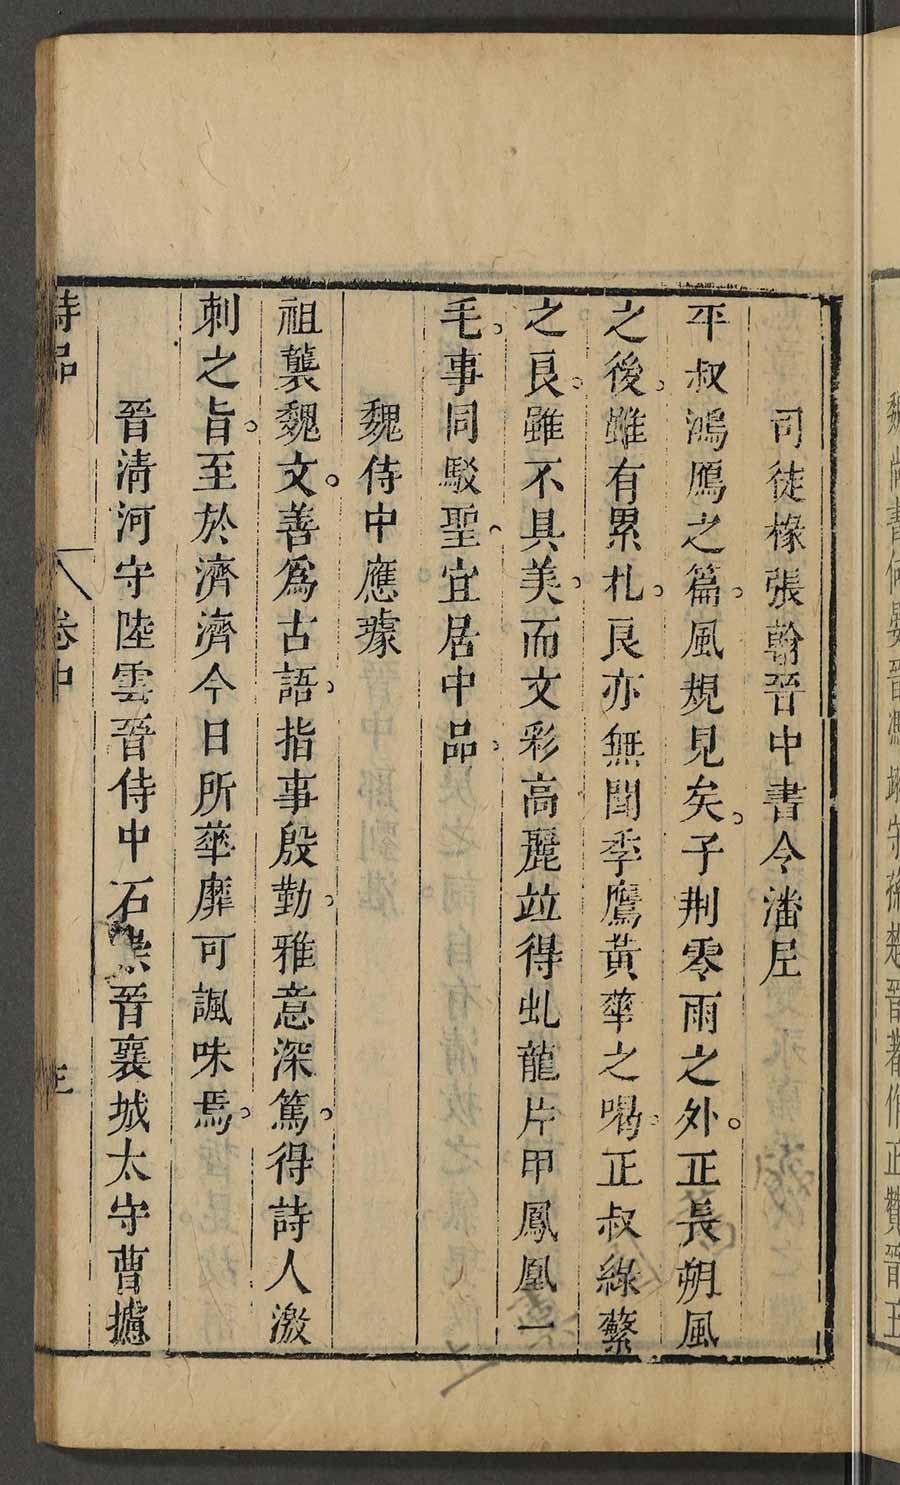 司徒椽張翰晉中書令潘尼
平叔鴻鴈之篇。風規見矣。子荆零雨之外。正長朔風
之後。雖有累札。良亦無聞。季鷹黃華之唱。正叔綠蘩
之良。雖不具美。而文彩高麗。竝得虬龍片甲。鳳凰一
毛。事同駁聖。宜居中品。
魏侍中應璩
祖襲魏文。善爲古語。指事殷勤。雅意深篤。得詩人激
刺之旨。至於濟濟今日所。華靡可諷味焉。
晉清河守陸雲晉侍中石崇晉襄城太守曹攄
詩品 卷中